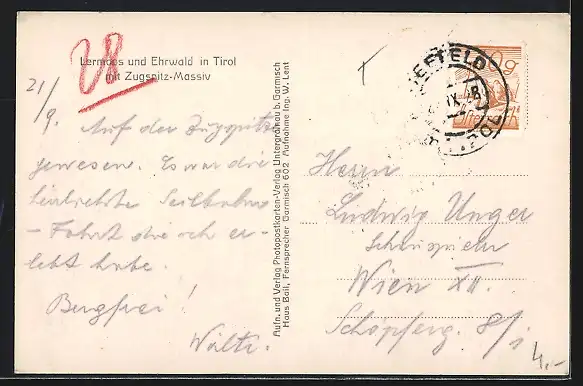 Lermoos und Ehrwald in Tirol
mit Zugspitz-Massiv
28
21/9.
Auf der Zugspitze
gewesen. Es war die
Seilbahn
- Fahrt die ich er-
lebt habe.
Bergfrei!
Walti.
Aufn. und Verlag Photopostkarten-Verlag Untergrainau b. Garmisch
Haus Bail, Fernsprecher Garmisch 602 Aufnahme Ing. W. Lent
SEEFELD
TIROL
IX 28
Herrn
Ludwig Unger
Schauspieler
Wien XII.
Schöpferg. 8/1
4,-